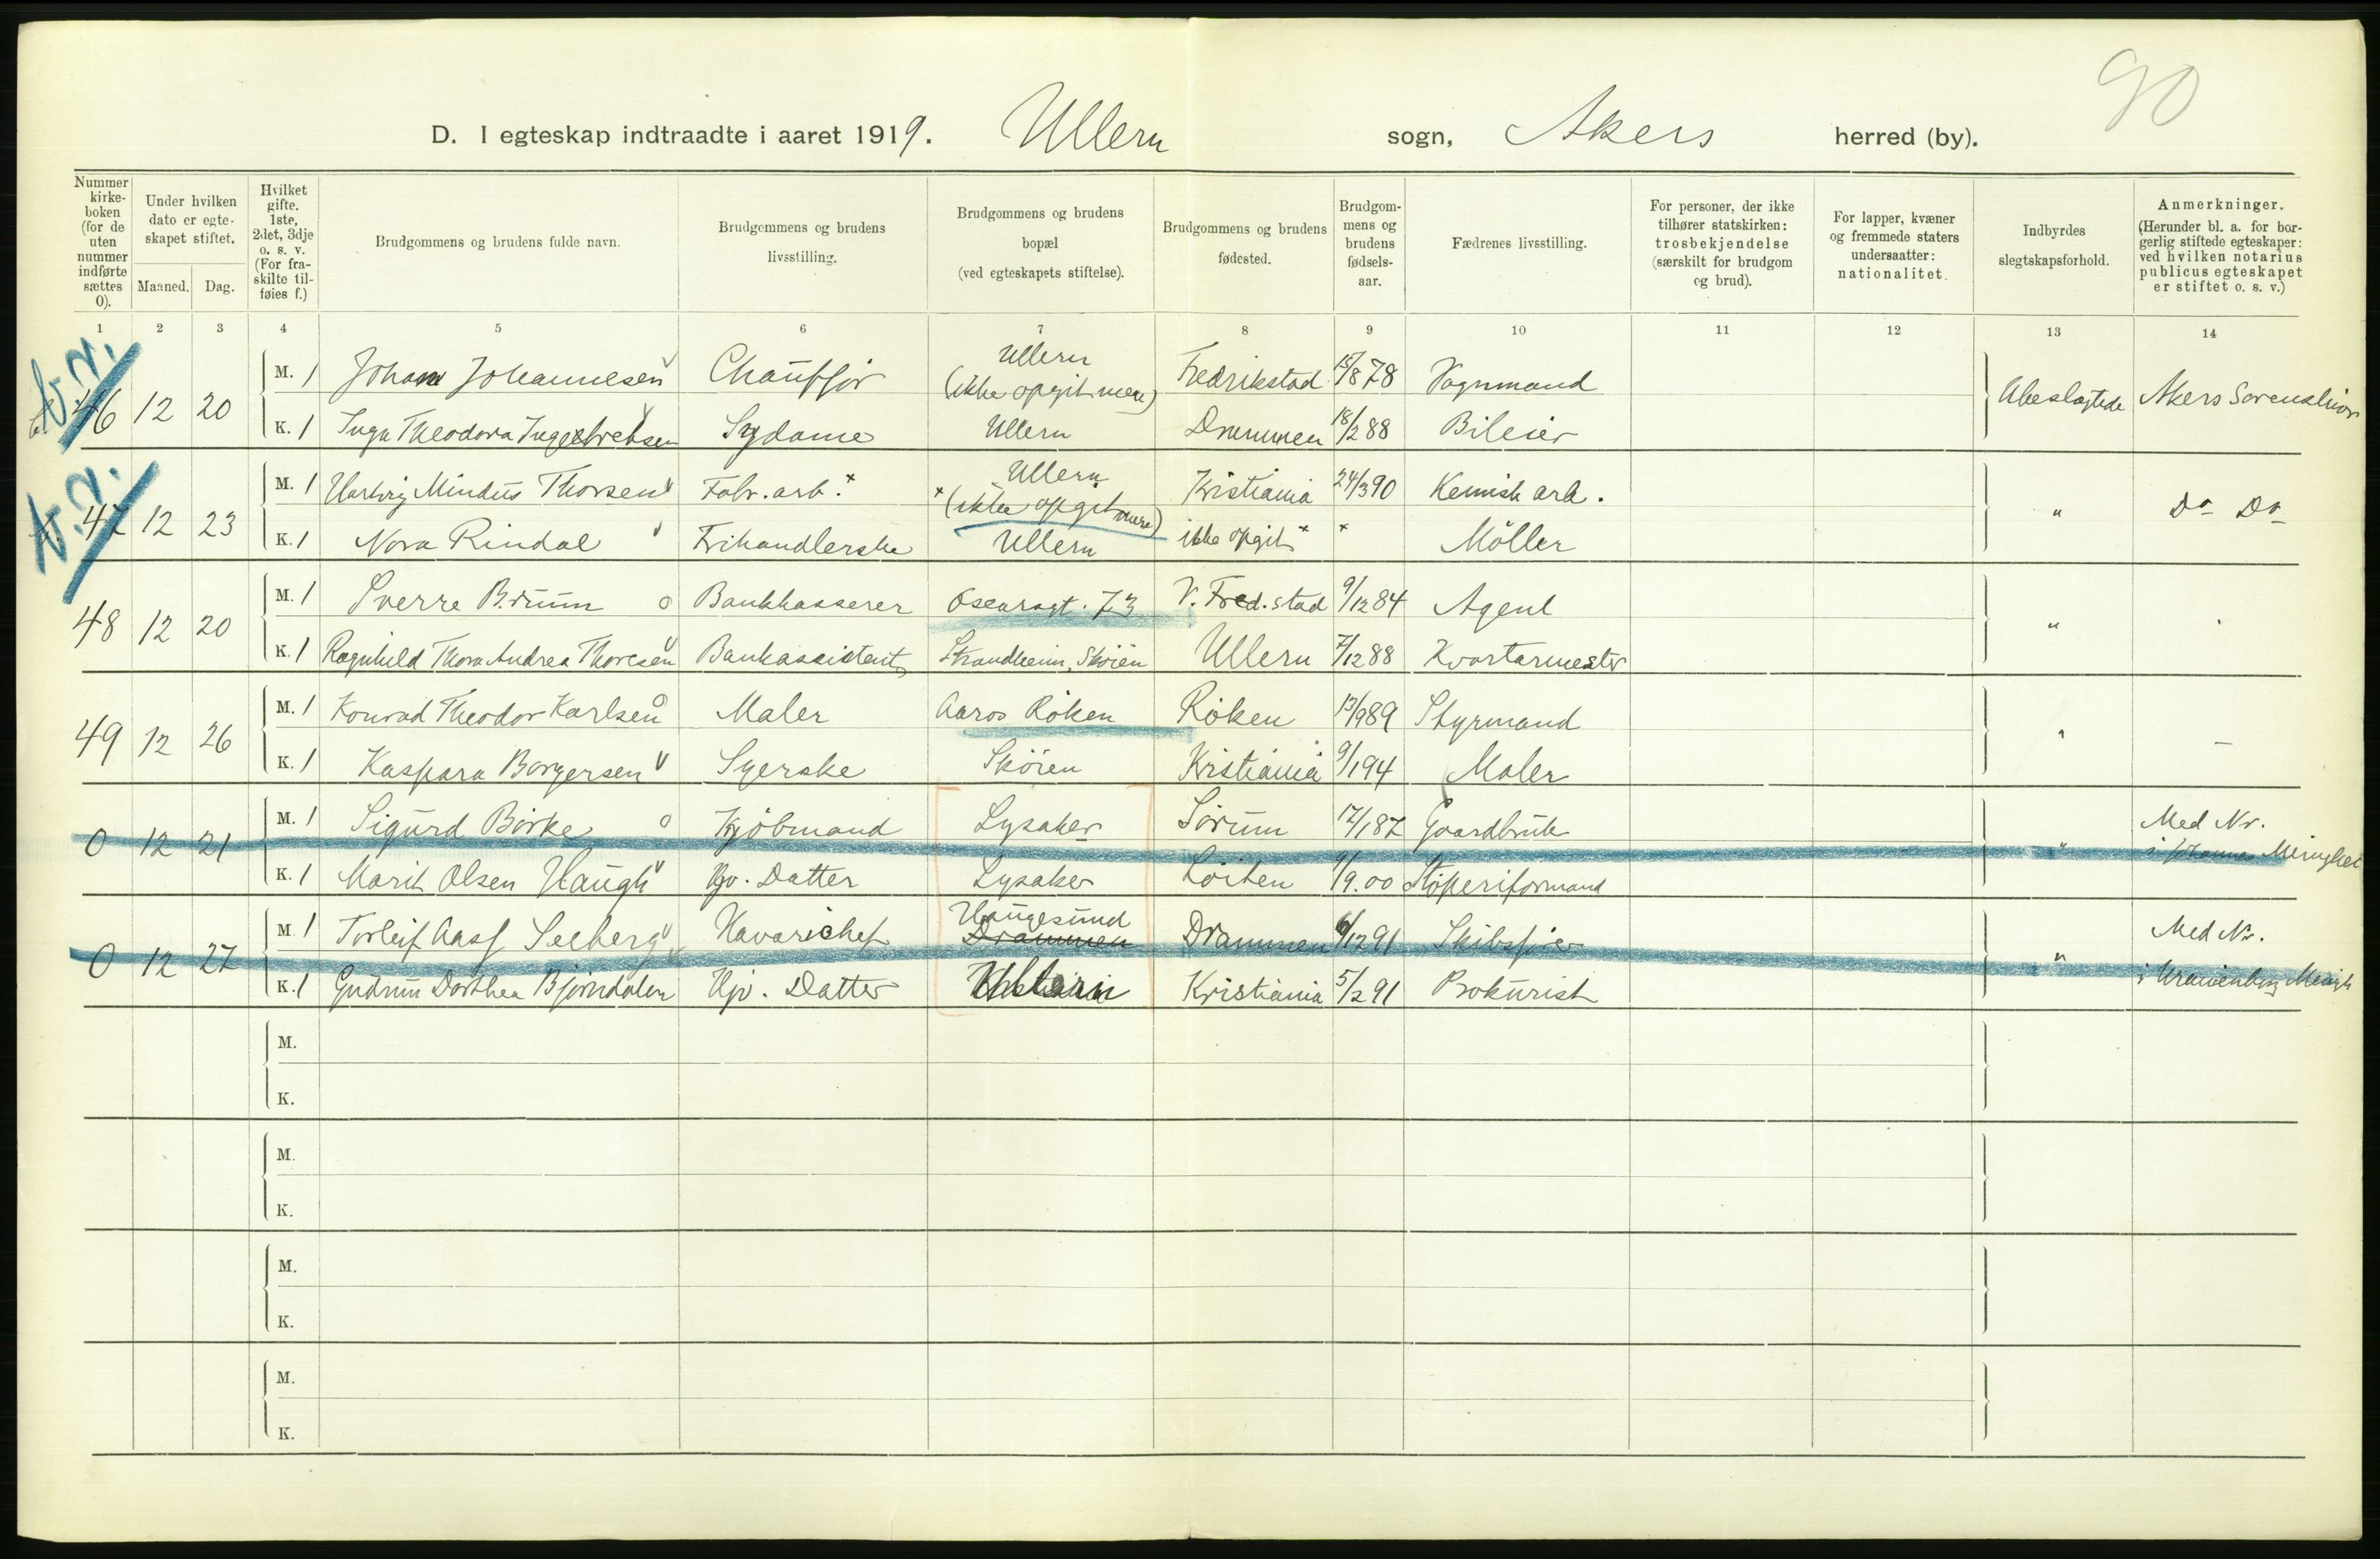 90
D. I egteskap indtraadte i aaret 1919. Ullern sogn, Akers herred (by).
Nummer kirkeboken (for de uten nummer indførte sættes 0).
Under hvilken dato er egteskapet stiftet.
Maaned. Dag.
Hvilket gifte. 1ste, 2det, 3dje o. s. v. (For fraskilte tilføies f.)
Brudgommens og brudens fulde navn.
Brudgommens og brudens livsstilling.
Brudgommens og brudens bopæl (ved egteskapets stiftelse).
Brudgommens og brudens fødested.
Brudgommens og brudens fødselsaar.
Fædrenes livsstilling.
For personer, der ikke tilhører statskirken: trosbekjendelse (særskilt for brudgom og brud).
For lapper, kvæner og fremmede staters undersaatter: nationalitet.
Indbyrdes slegtskapsforhold.
Anmerkninger. (Herunder bl. a. for borgerlig stiftede egteskaper: ved hvilken notarius publicus egteskapet er stiftet o. s. v.)
1 2 3 4 5 6 7 8 9 10 11 12 13 14
46 12 20 M. 1 Johan Johannesen Chauffør Ullern (ikke opgit mere) Fredrikstad 15/8 78 Vognmand Ubeslægtede Akers Sorenskriver
K. 1 Inga Theodora Ingebretsen Sydame Ullern Drammen 18/2 88 Bileier
47 12 23 M. 1 Hartvig Mindus Thorsen Fabr. arb. × Ullern × (ikke opgit mere) Kristiania 24/3 90 Kemisk arb. " Do Do
K. 1 Nora Rindal Frihandlerske Ullern ikke opgit × × Møller
48 12 20 M. 1 Sverre Bruun o Bankkasserer Oscarsgt. 73 V. Fred.stad 9/12 84 Agent "
K. 1 Ragnhild Thora Andrea Thoresen Bankassistent Strandheim, Skøien Ullern 7/12 88 Kvartermester
49 12 26 M. 1 Konrad Theodor Karlsen Maler Aaros Røken Røken 13/9 89 Styrmand " —
K. 1 Kaspara Borgersen Syerske Skøien Kristiania 9/1 94 Maler
0 12 21 M. 1 Sigurd Børke o Kjøbmand Lysaker Sørum 17/1 87 Gaardbruk " Med Nr. i Johannes Menighet
K. 1 Marit Olsen Haugli Hjv. Datter Lysaker Løiten 9/9.00 Støperiformand
0 12 27 M. 1 Torleif Aass Seeberg Havarichef Haugesund Drammen Drammen 6/12 91 Skibsfører " Med Nr. i Uranienborg Menigh
K. 1 Gudrun Dorthea Bjørndalen Hjv. Datter Ullern Kristiania 5/2 91 Prokurist
M.
K.
M.
K.
M.
K.
M.
K.